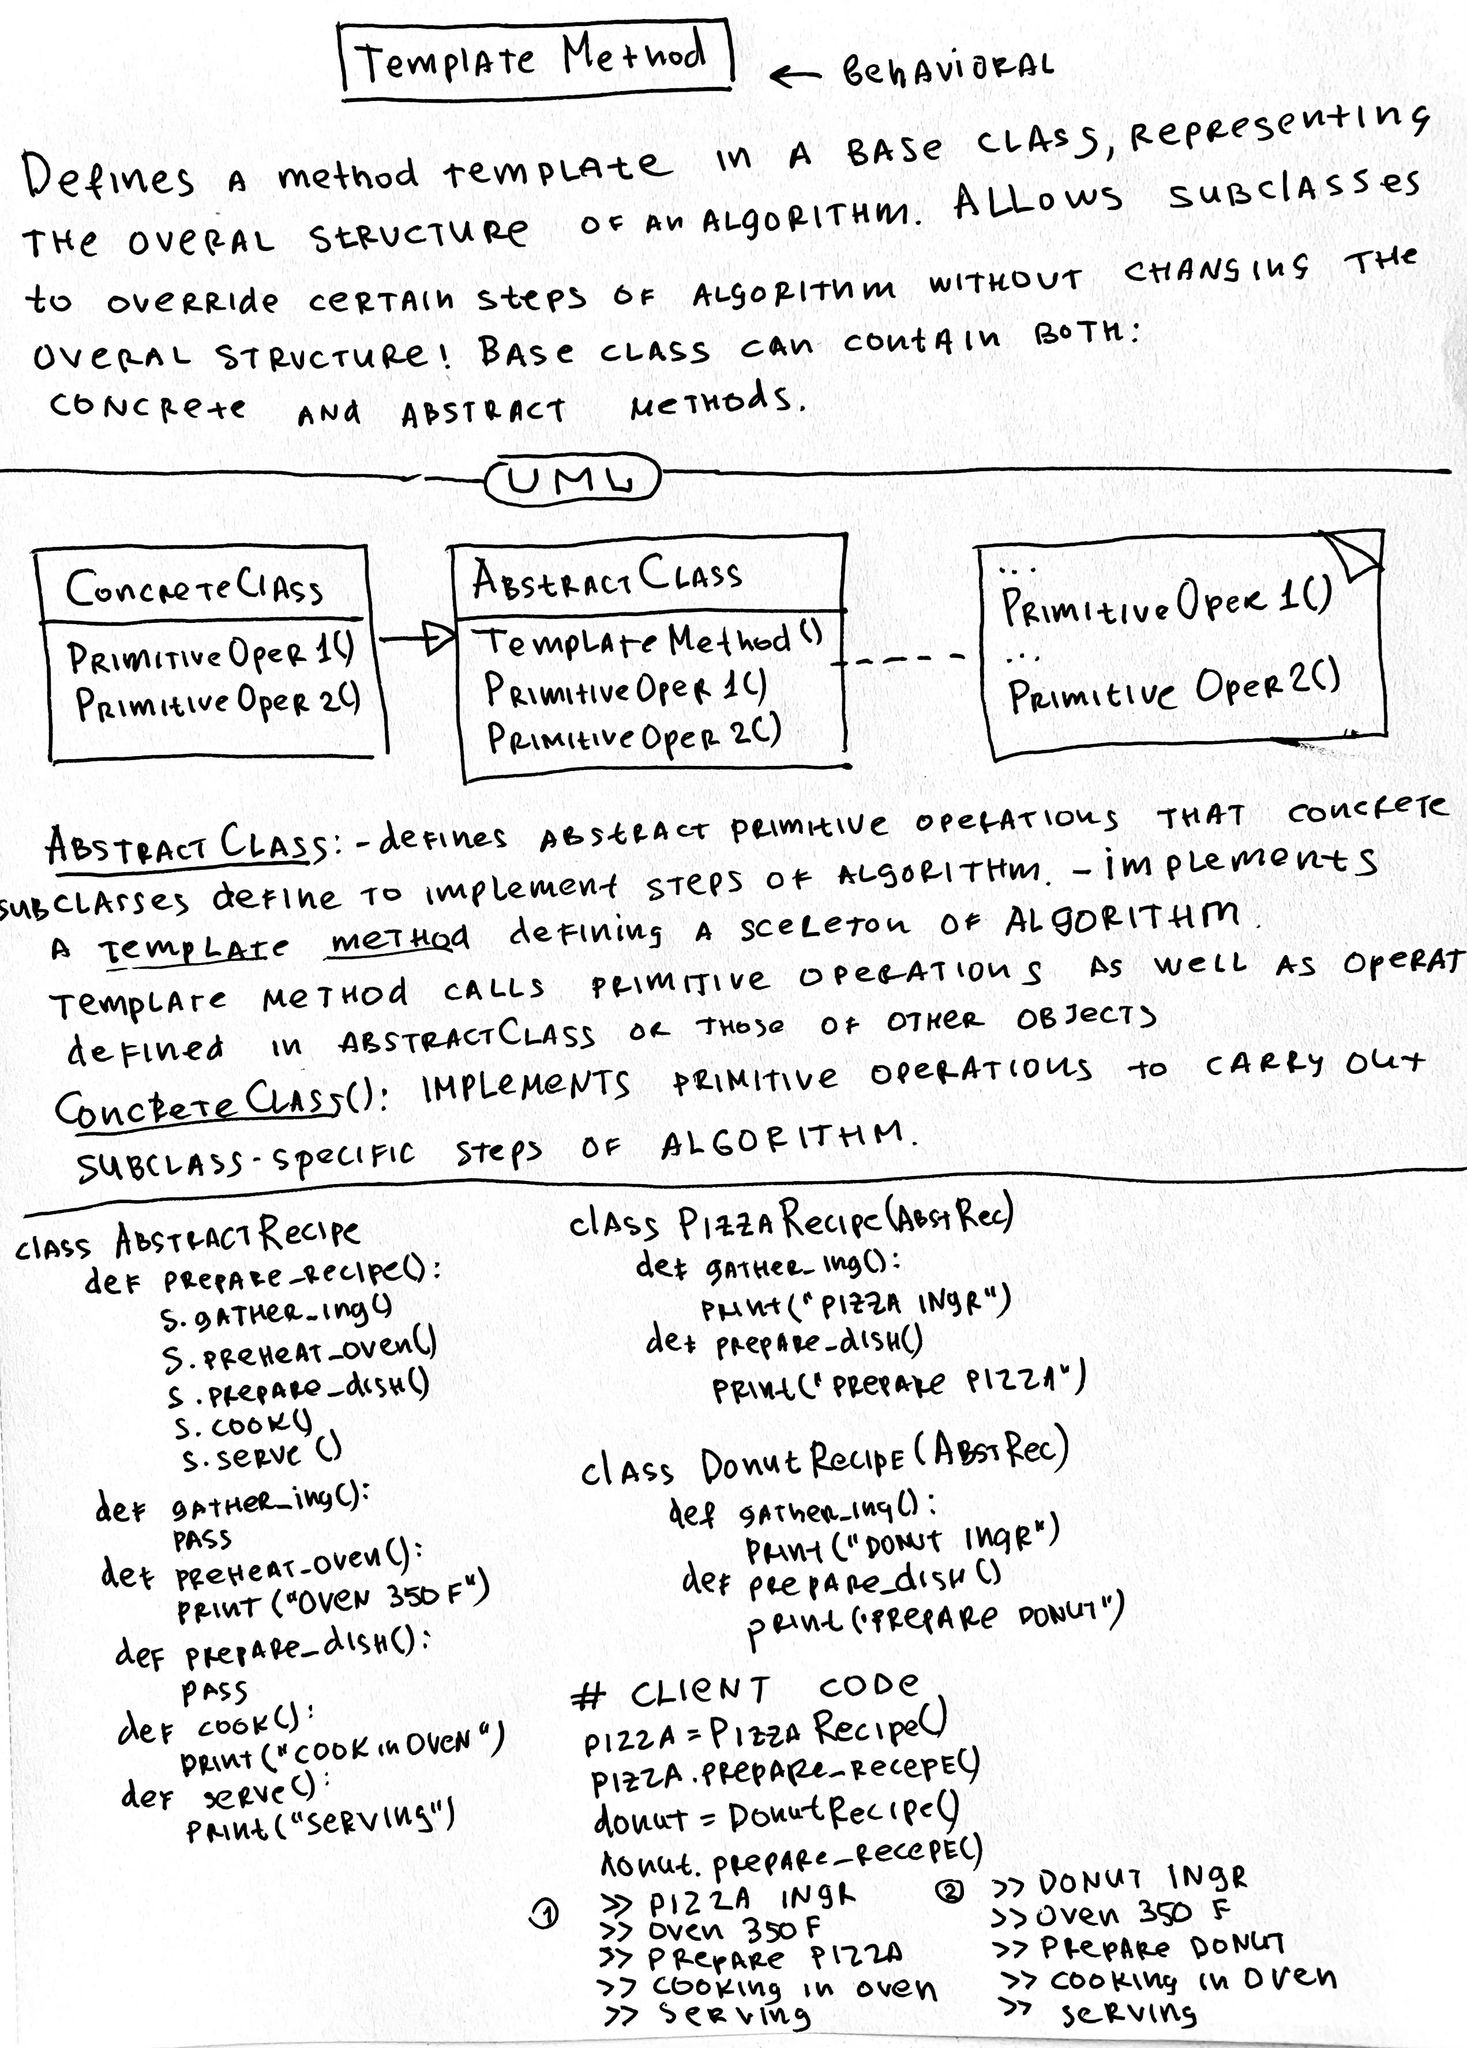 Template Method
← Behavioral
Defines a method template in a base class, representing
the overal structure of an algorithm. Allows subclasses
to override certain steps of algorithm without changing the
overal structure! Base class can contain both:
concrete and abstract methods.
UML
ConcreteClass
PrimitiveOper1()
PrimitiveOper2()
AbstractClass
TemplateMethod()
PrimitiveOper1()
PrimitiveOper2()
...
PrimitiveOper1()
...
PrimitiveOper2()
AbstractClass: - defines abstract primitive operations that concrete
subclasses define to implement steps of algorithm. - implements
a template method defining a sceleton of algorithm.
Template method calls primitive operations as well as operat
defined in AbstractClass or those of other objects
ConcreteClass(): implements primitive operations to carry out
subclass-specific steps of algorithm.
class AbstractRecipe
def prepare_recipe():
s.gather_ing()
s.preheat_oven()
s.prepare_dish()
s.cook()
s.serve()
def gather_ing():
pass
def preheat_oven():
print("Oven 350 F")
def prepare_dish():
pass
def cook():
print("cook in oven")
def serve():
print("serving")
class PizzaRecipe(AbstRec)
def gather_ing():
print("pizza ingr")
def prepare_dish()
print("prepare pizza")
class DonutRecipe(AbstRec)
def gather_ing():
print("donut ingr")
def prepare_dish()
print("prepare donut")
# client code
pizza = PizzaRecipe()
pizza.prepare_recepe()
donut = DonutRecipe()
donut.prepare_recepe()
① >> pizza ingr
>> oven 350 F
>> prepare pizza
>> cooking in oven
>> serving
② >> donut ingr
>> oven 350 F
>> prepare donut
>> cooking in oven
>> serving